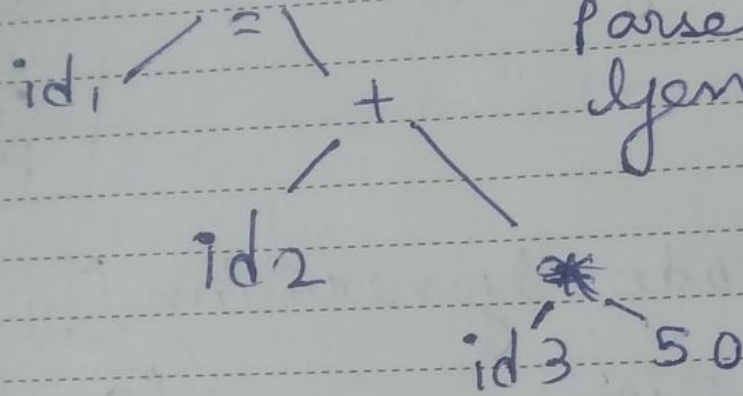 = Parse
id1 +
id2 *
id3 50